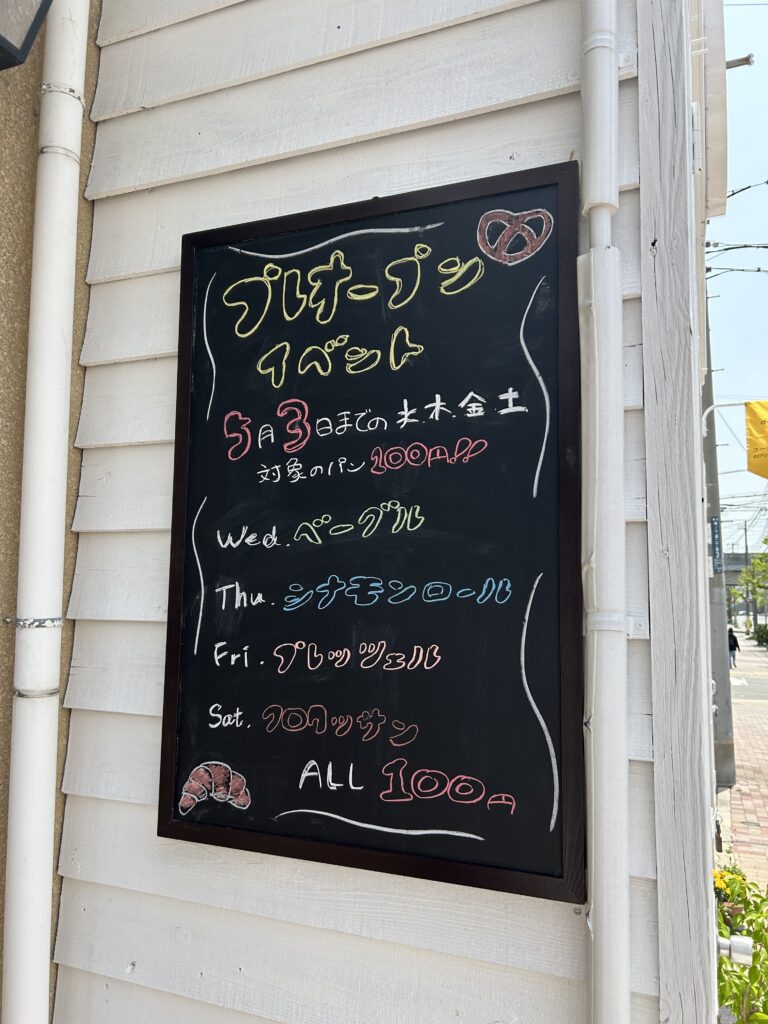 プレオープン
イベント
5月3日までの 水.木.金.土
対象のパン100円!!
Wed. ベーグル
Thu. シナモンロール
Fri. プレッツェル
Sat. クロワッサン
ALL 100円